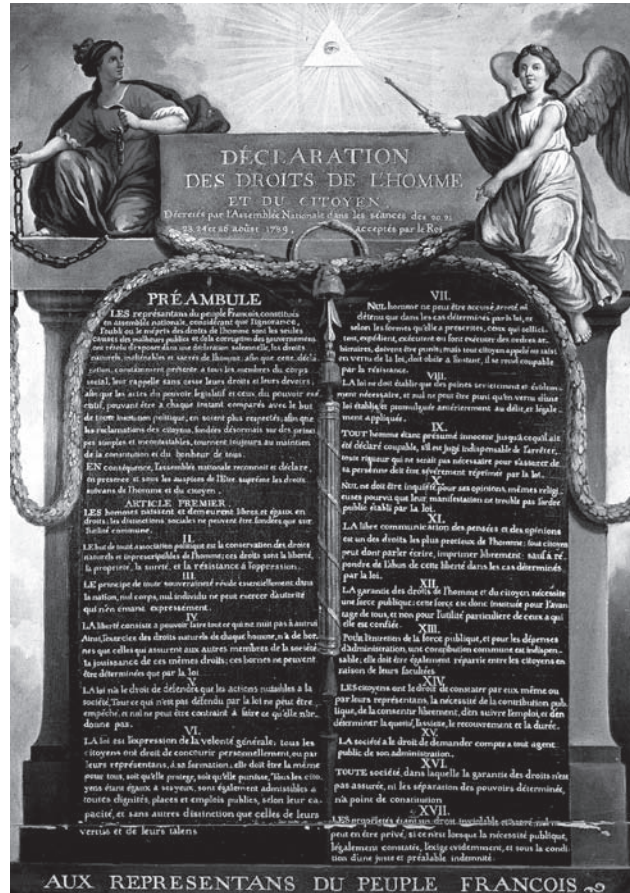 DÉCLARATION
DES DROITS DE L'HOMME
ET DU CITOYEN,
Décretés par l'Assemblée Nationale dans les séances des 20. 21
23. 24 et 26 août 1789, acceptés par le Roi
PRÉAMBULE
LES représentans du peuple François, constitués
en assemblée nationale, considérant que l'ignorance,
l'oubli ou le mépris des droits de l'homme sont les seules
causes des malheurs publics et de la corruption des gouvernemens
ont résolu d'exposer dans une déclaration solemnelle, les droits
naturels, inaliénables et sacrés de l'homme; afin que cette décla-
ration, constamment présente a tous les membres du corps
social, leur rappelle sans cesse leurs droits et leurs devoirs;
afin que les actes du pouvoir législatif et ceux du pouvoir exé-
cutif, pouvant être à chaque instant comparés avec le but
de toute institution politique, en soient plus respectés; afin que
les réclamations des citoyens, fondées désormais sur des princi-
pes simples et incontestables, tournent toujours au maintien
de la constitution et du bonheur de tous.
EN conséquence, l'assemblée nationale reconnoît et déclare,
en présence et sous les auspices de l'Être suprême les droits
suivans de l'homme et du citoyen.
ARTICLE PREMIER.
LES hommes naissent et demeurent libres et égaux en
droits; les distinctions sociales ne peuvent être fondées que sur
l'utilité commune.
II.
LE but de toute association politique est la conservation des droits
naturels et imprescriptibles de l'homme; ces droits sont la liberté,
la propriété, la sureté, et la résistance à l'oppression.
III.
LE principe de toute souveraineté réside essentiellement dans
la nation, nul corps, nul individu ne peut exercer d'autorité
qui n'en émane expressément.
IV.
LA liberté consiste a pouvoir faire tout ce qui ne nuit pas à autrui
Ainsi, l'exercice des droits naturels de chaque homme, n'a de bor-
nes que celles qui assurent aux autres membres de la société
la jouissance de ces mêmes droits; ces bornes ne peuvent
être déterminées que par la loi.
V.
LA loi n'a le droit de défendre que les actions nuisibles a la
société. Tout ce qui n'est pas défendu par la loi ne peut être
empêché, et nul ne peut être contraint à faire ce qu'elle n'or-
donne pas.
VI.
LA loi est l'expression de la volonté générale; tous les
citoyens ont droit de concourir personnellement, ou par
leurs représentans, à sa formation; elle doit être la même
pour tous, soit qu'elle protege, soit qu'elle punisse. Tous les cito-
yens étant égaux à ses yeux, sont également admissibles a
toutes dignités, places et emplois publics, selon leur ca-
pacité, et sans autres distinction que celles de leurs
vertus et de leurs talens
VII.
NUL homme ne peut être accusé, arreté, ni
détenu que dans les cas déterminés par la loi, et
selon les formes qu'elle a prescrites, ceux qui sollici-
tent, expédient, exécutent ou font exécuter des ordres ar-
bitraires, doivent être punis; mais tout citoyen appelé ou saisi
en vertu de la loi, doit obéir a l'instant, il se rend coupable
par la résistance.
VIII.
LA loi ne doit établir que des peines strictement et évidem-
ment nécessaire, et nul ne peut être puni qu'en vertu d'une
loi établie, et promulguée antérierement au délit, et légale-
ment appliquée.
IX.
TOUT homme étant présumé innocent jusqu'à ce qu'il ait
été déclaré coupable, s'il est jugé indispensable de l'arrêter,
toute rigueur qui ne serait pas nécessaire pour s'assurer de
sa personne doit être sévèrement réprimée par la loi.
X.
NUL ne doit être inquiété pour ses opinions, mêmes religi-
euses pourvu que leur manifestation ne trouble pas l'ordre
public établi par la loi.
XI.
LA libre communication des pensées et des opinions
est un des droits les plus precieux de l'homme; tout citoyen
peut dont parler écrire, imprimer librement: sauf à ré-
pondre de l'abus de cette liberté dans les cas déterminés
par la loi.
XII.
LA garantie des droits de l'homme et du citoyen nécessite
une force publique; cette force est donc instituée pour l'avan-
tage de tous, et non pour l'utilité particuliere de ceux a qui
elle est confiée.
XIII.
Pour l'entretien de la force publique, et pour les dépenses
d'administration, une contribution commune est indispen-
sable; elle doit être également répartie entre les citoyens en
raison de leurs facultées.
XIV.
LES citoyens ont le droit de constater par eux même ou
par leurs représentans, la nécessité de la contribution pub-
lique, de la consentir librement, d'en suivre l'emploi, et d'en
déterminer la quotité, l'assiete, le recouvrement et la durée.
XV.
LA société a le droit de demander compte a tout agent
public de son administration.
XVI.
TOUTE société, dans laquelle la garantie des droits n'est
pas assurée, ni les séparation des pouvoirs déterminée,
n'a point de constitution
XVII.
LES propriétés étant un droit inviolable et sacré, nul ne
peut en être privé, si ce n'est lorsque la nécessité publique,
légalement constatée, l'exige evidemment, et sous la condi-
tion d'une juste et préalable indemnité.
AUX REPRESENTANS DU PEUPLE FRANCOIS